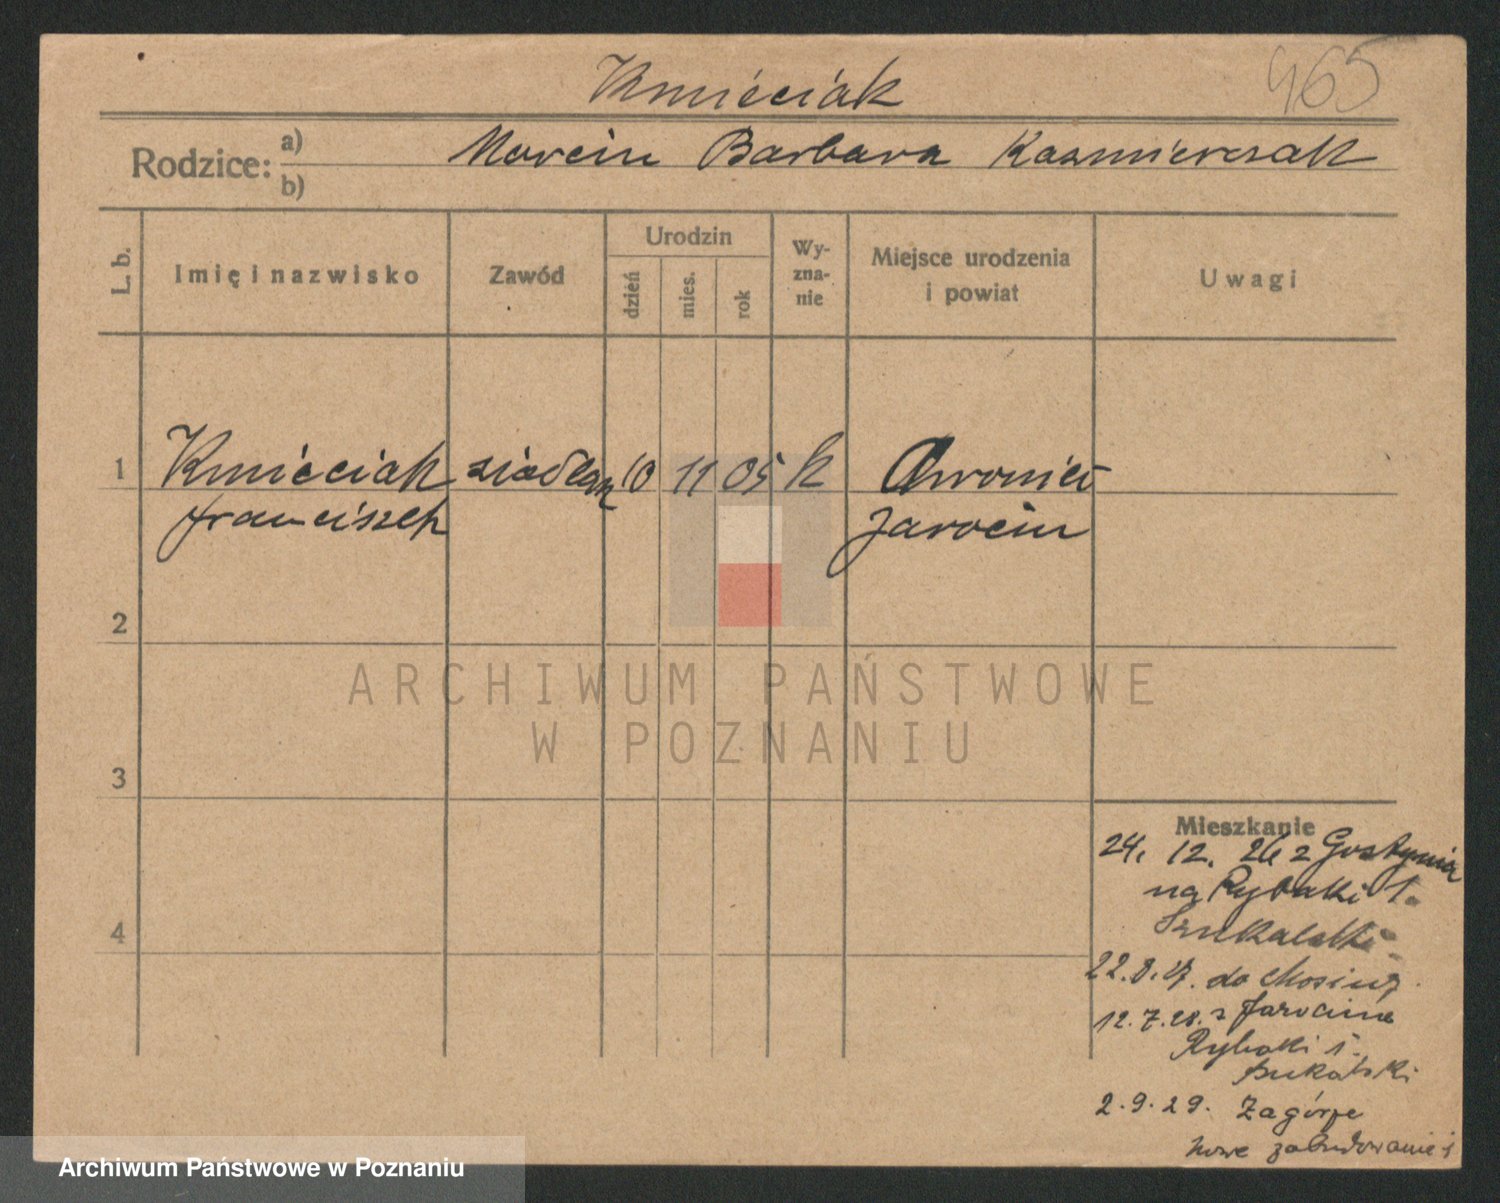 Kmieciak
465
Rodzice: a) Marcin Barbara Kazmierczak
b)
L. b.
Imię i nazwisko
Zawód
Urodzin
dzień
mies.
rok
Wy-
zna-
nie
Miejsce urodzenia
i powiat
Uwagi
1 Kmieciak 10 11 05 k
Franciszek Jarocin
2
3
4
Mieszkanie
24. 12. 26 z Gostynia
na Rybaki 1.
22.8.27. do Mosiny
12.7.28. z Jarocina
Rybaki 1.
2.9.29. Zagórze
nowe zabudowanie 1
ARCHIWUM PAŃSTWOWE
W POZNANIU
Archiwum Państwowe w Poznaniu